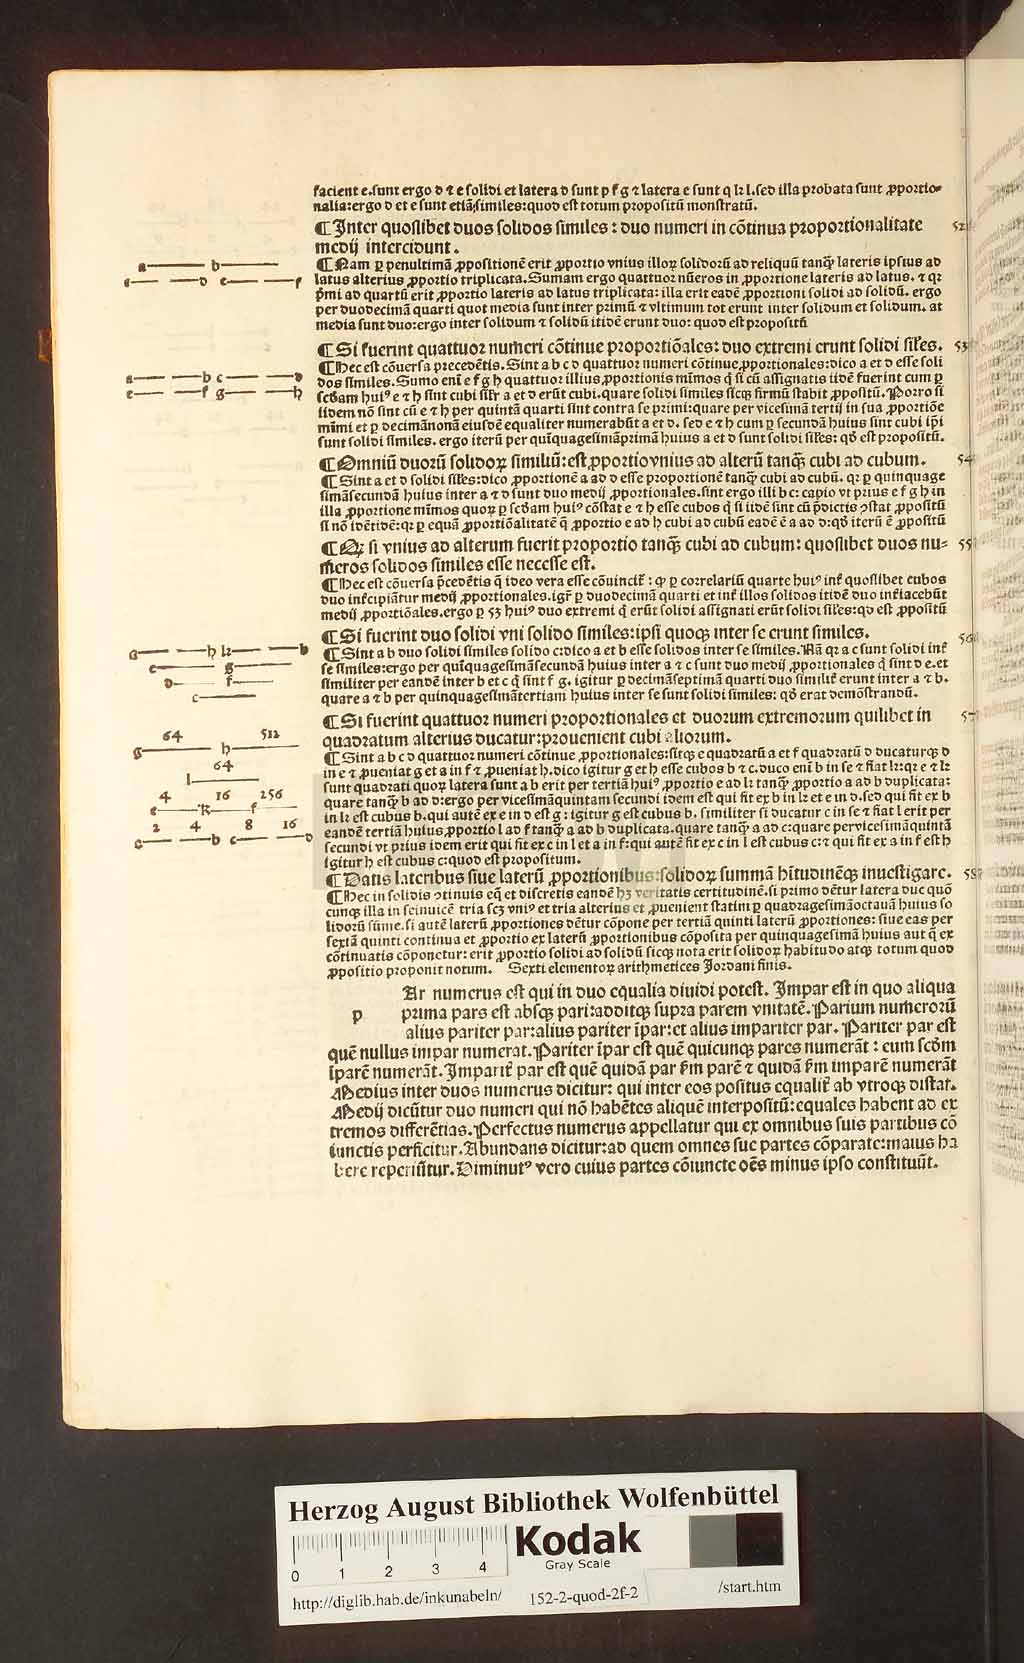 facient e. sunt ergo d ⁊ e solidi et latera d sunt p f g ⁊ latera e sunt q k l. sed illa probata sunt ꝓportio-
nalia: ergo d et e sunt etiā; similes: quod est totum propositū monstratū.
¶ Inter quoslibet duos solidos similes: duo numeri in cōtinua proportionalitate 52
medij intercidunt.
¶ Nam ꝑ penultimā ꝓpositionē erit ꝓportio vnius illoꝝ solidorū ad reliquū tanqȝ lateris ipsius ad
latus alterius ꝓportio triplicata. Sumam ergo quattuor nūeros in ꝓportione lateris ad latus. ⁊ qꝛ
p̄mi ad quartū erit ꝓportio lateris ad latus triplicata: illa erit eadē ꝓportioni solidi ad solidū. ergo
per duodecimā quarti quot media sunt inter primū ⁊ vltimum tot erunt inter solidum et solidum. at
media sunt duo: ergo inter solidum ⁊ solidū itidē erunt duo: quod est propositū
¶ Si fuerint quattuor numeri cōtinue proportiōales: duo extremi erunt solidi siƚes. 53
¶ Hec est cōuersa precedētis. Sint a b c d quattuor numeri cōtinue ꝓportionales: dico a et d esse soli
dos similes. Sumo eni e f g h quattuor illius ꝓportionis mīmos q̄ si cū assignatis iidē fuerint cum ꝑ
scd̄am huiꝰ e ⁊ h sint cubi siƚr a et d erūt cubi. quare solidi similes sicqȝ firmū stabit ꝓpositū. Porro si
iidem nō sint cū e ⁊ h per quintā quarti sint contra se primi: quare per vicesimā tertij in sua ꝓportiōe
mīmi et ꝑ decimānonā eiusdē equaliter numerabūt a et d. sed e ⁊ h cum ꝑ secundā huius sint cubi ip̄i
sunt solidi similes. ergo iterū per quīquagesimāprimā huius a et d sunt solidi siƚes: qd̄ est propositū.
¶ Omniū duorū solidoꝝ similiū: est ꝓportio vnius ad alterū tanqȝ cubi ad cubum. 54
¶ Sint a et d solidi siƚes: dico ꝓportionē a ad d esse proportionē tanqȝ cubi ad cubū. qꝛ ꝑ quinquage
simāsecundā huius inter a ⁊ d sunt duo medij ꝓportionales. sint ergo illi b c: capio vt prius e f g h in
illa ꝓportione mīmos quoꝝ ꝑ scd̄am huiꝰ cōstat e ⁊ h esse cubos q̄ si iidē sint cū p̄dictis ↄstat ꝓpositū
si nō idētidē: qꝛ ꝑ equā ꝓportiōalitatē q̄ ꝓportio e ad h cubi ad cubū eadē ē a ad d: qd̄ iterū ē ꝓpositū
¶ Qꝛ si vnius ad alterum fuerit proportio tanqȝ cubi ad cubum: quoslibet duos nu= 55
meros solidos similes esse necesse est.
¶ Hec est cōuersa p̄cedētis q̄ ideo vera esse cōuincit̄: qꝛ ꝑ correlariū quarte huiꝰ int̄ quoslibet cubos
duo intercipiātur medij ꝓportionales. igr̄ ꝑ duodecimā quarti et int̄ illos solidos itidē duo int̄iacebūt
medij ꝓportiōales. ergo ꝑ 53 huiꝰ duo extremi q̄ erūt solidi assignati erūt solidi siƚes: qd̄ est ꝓpositū
¶ Si fuerint duo solidi vni solido similes: ipsi quoqȝ inter se erunt similes. 56
¶ Sint a b duo solidi similes solido c: dico a et b esse solidos inter se similes. Nā qꝛ a c sunt solidi int̄
se similes: ergo per quīquagesimāsecundā huius inter a ⁊ c sunt duo medij ꝓportionales q̄ sint d e. et
similiter per eandē inter b et c q̄ sint f g. igitur ꝑ decimāseptimā quarti duo similit̄ erunt inter a ⁊ b.
quare a ⁊ b per quinquagesimātertiam huius inter se sunt solidi similes: qd̄ erat demōstrandū.
¶ Si fuerint quattuor numeri proportionales et duorum extremorum quilibet in 57
quadratum alterius ducatur: prouenient cubi aliorum.
¶ Sint a b c d quattuor numeri cōtinue ꝓportionales: sitqȝ e quadratū a et f quadratū d ducaturqȝ d
in e ⁊ ꝓueniat g et a in f ⁊ ꝓueniat h. dico igitur g et h esse cubos b ⁊ c. duco eni b in se ⁊ fiat k: qꝛ e ⁊ k
sunt quadrati quoꝝ latera sunt a b erit per tertiā huiꝰ ꝓportio e ad k tanqȝ ꝓportio a ad b duplicata:
quare tanqȝ b ad d: ergo per vicesimāquintam secundi idem est qui fit ex b in k et e in d. sed qui fit ex b
in k est cubus b. qui autē ex e in d est g: igitur g est cubus b. similiter si ducatur c in se ⁊ fiat l erit per
eandē tertiā huius ꝓportio l ad f tanqȝ a ad b duplicata. quare tanqȝ a ad c: quare per vicesimāquintā
secundi vt prius idem erit qui fit ex c in l et a in f: qui autē fit ex c in l est cubus c: ⁊ qui fit ex a in f est h
igitur h est cubus c: quod est propositum.
¶ Datis lateribus siue laterū ꝓportionibus: solidoꝝ summā hītudinēqȝ inuestigare. 58
¶ Hec in solidis ↄtinuis eq̄ et discretis eandē hȝ veritatis certitudinē. si primo dētur latera duc quō
cunqȝ illa in seinuicē tria scȝ vniꝰ et tria alterius et ꝓuenient statim ꝑ quadragesimāoctauā huius so
lidorū sūme. si autē laterū ꝓportiones dētur cōpone per tertiā quinti laterū ꝓportiones: siue eas per
sextā quinti continua et ꝓportio ex laterū ꝓportionibus cōposita per quinquagesimā huius aut q̄ ex
cōtinuatis cōponetur: erit ꝓportio solidi ad solidū sicqȝ nota erit solidoꝝ habitudo atqȝ totum quod
ꝓpositio proponit notum. Sexti elementoꝝ arithmetices Jordani finis.
p Ar numerus est qui in duo equalia diuidi potest. Impar est in quo aliqua
prima pars est absqȝ pari: additqȝ supra parem vnitatē. Parium numerorū
alius pariter par: alius pariter īpar: et alius impariter par. Pariter par est
quē nullus impar numerat. Pariter īpar est quē quicunqȝ pares numerāt: eum scd̄m
īparē numerāt. Imparit̄ par est quē quidā par s̄m parē ⁊ quidā s̄m imparē numerāt
Medius inter duos numerus dicitur: qui inter eos positus equalit̄ ab vtroqȝ distat.
Medij dicūtur duo numeri qui nō habētes aliquē interpositū: equales habent ad ex
tremos differētias. Perfectus numerus appellatur qui ex omnibus suis partibus cō
iunctis perficitur. Abundans dicitur: ad quem omnes sue partes cōparate: maius ha
bere reperiūtur. Diminutꝰ vero cuius partes cōiuncte oēs minus ipso constituūt.
a b
e d c f
a b c d
e f g h
a h k b
e g
d f
c
64 512
g h
64
l
4 16 256
e k f
2 4 8 16
a b c d
Herzog August Bibliothek Wolfenbüttel
Kodak
Gray Scale
0 1 2 3 4
http://diglib.hab.de/inkunabeln/ 152-2-quod-2f-2 /start.htm